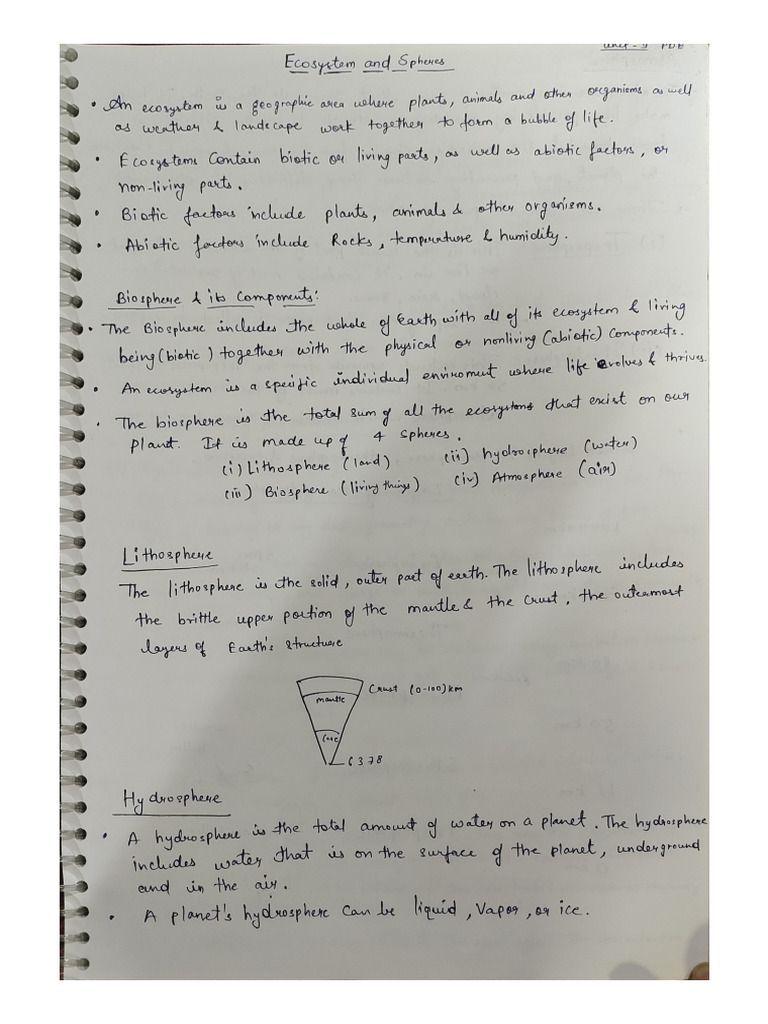 Unit-5 PDE
Ecosystem and Spheres
• An ecosystem is a geographic area where plants, animals and other organisms as well
as weather & landscape work together to form a bubble of life.
• Ecosystems Contain biotic or living parts, as well as abiotic factors, or
non-living parts.
• Biotic factors include plants, animals & other organisms.
• Abiotic factors include Rocks, temperature & humidity.
Biosphere & its Components:
• The Biosphere includes the whole of Earth with all of its ecosystem & living
being (biotic) together with the physical or nonliving (abiotic) Components.
• An ecosystem is a specific individual enviroment where life evolves & thrives.
• The biosphere is the total sum of all the ecosystems that exist on our
planet. It is made up of 4 spheres.
(i) Lithosphere (land) (ii) hydrosphere (water)
(iii) Biosphere (living things) (iv) Atmosphere (air)
Lithosphere
The lithosphere is the solid, outer part of earth. The lithosphere includes
the brittle upper portion of the mantle & the crust, the outermost
layers of Earth's structure
Crust (0-100) km
mantle
Core
6378
Hydrosphere
• A hydrosphere is the total amount of water on a planet. The hydrosphere
includes water that is on the surface of the planet, underground
and in the air.
• A planet's hydrosphere can be liquid, Vapor, or ice.